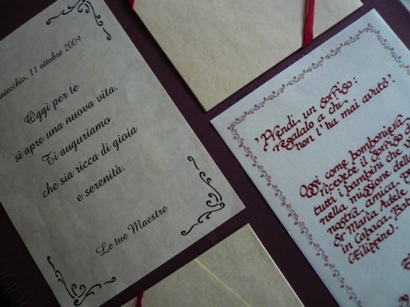 11 ottobre 2009
Oggi per te
si apre una nuova vita.
Ti auguriamo
che sia ricca di gioia
e serenità.
Le tue Maestre
"Prendi un sorriso:
regalalo a chi
non l'ha mai avuto".
Oggi come bomboniera
ricevete il sorriso
tutti i bambini che
nella missione della
nostra amica
Sr Maria
in Cebara
(Filippine).